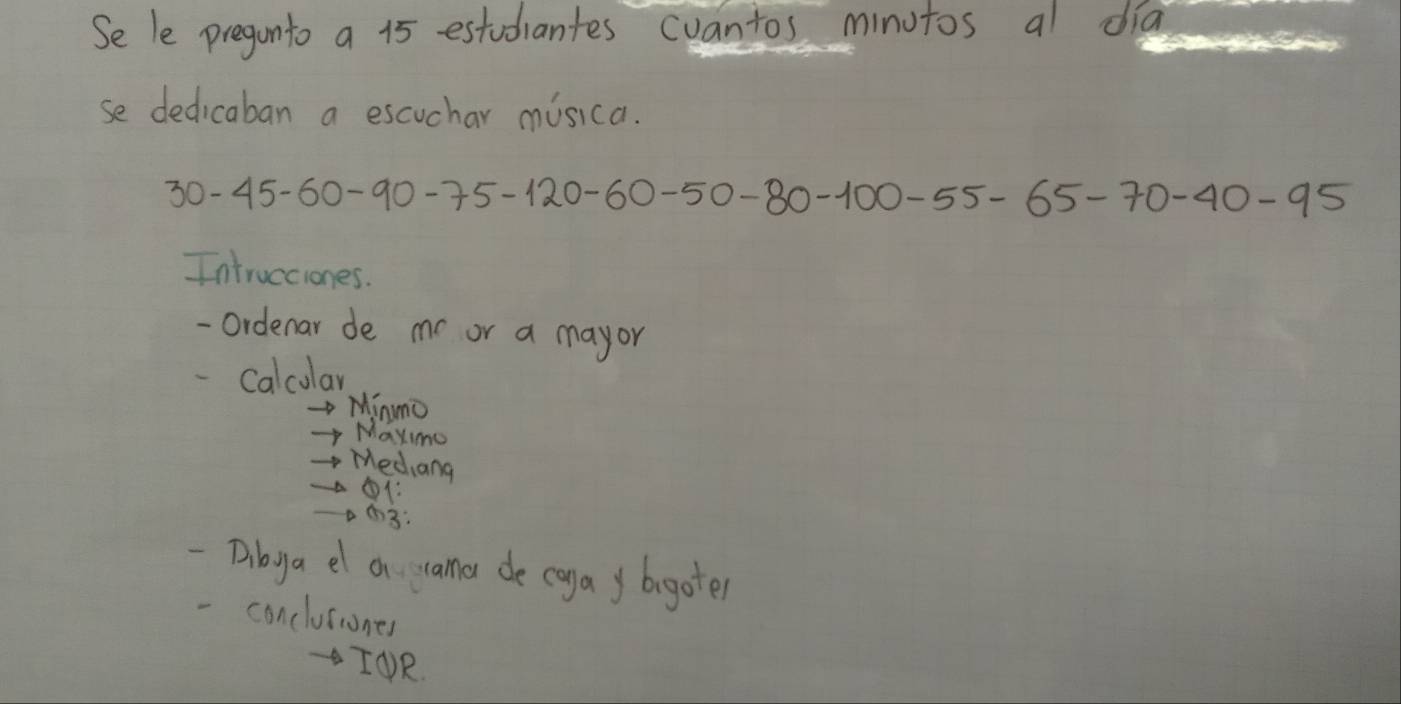 Se le pregunto a 15 estudiantes cuantos minutos al día
se dedicaban a escuchar música.
30-45-60-90-75-120-60-50-80-100-55-65-70-40-95
Intrucciones.
- Ordenar de a mayor
- Calcular
→ Mínimo
→ Maximo
→ Mediana
→ Q1:
→ Q3:
- Dibuja el de caja y bigotes
- conclusiones
→ IQR.